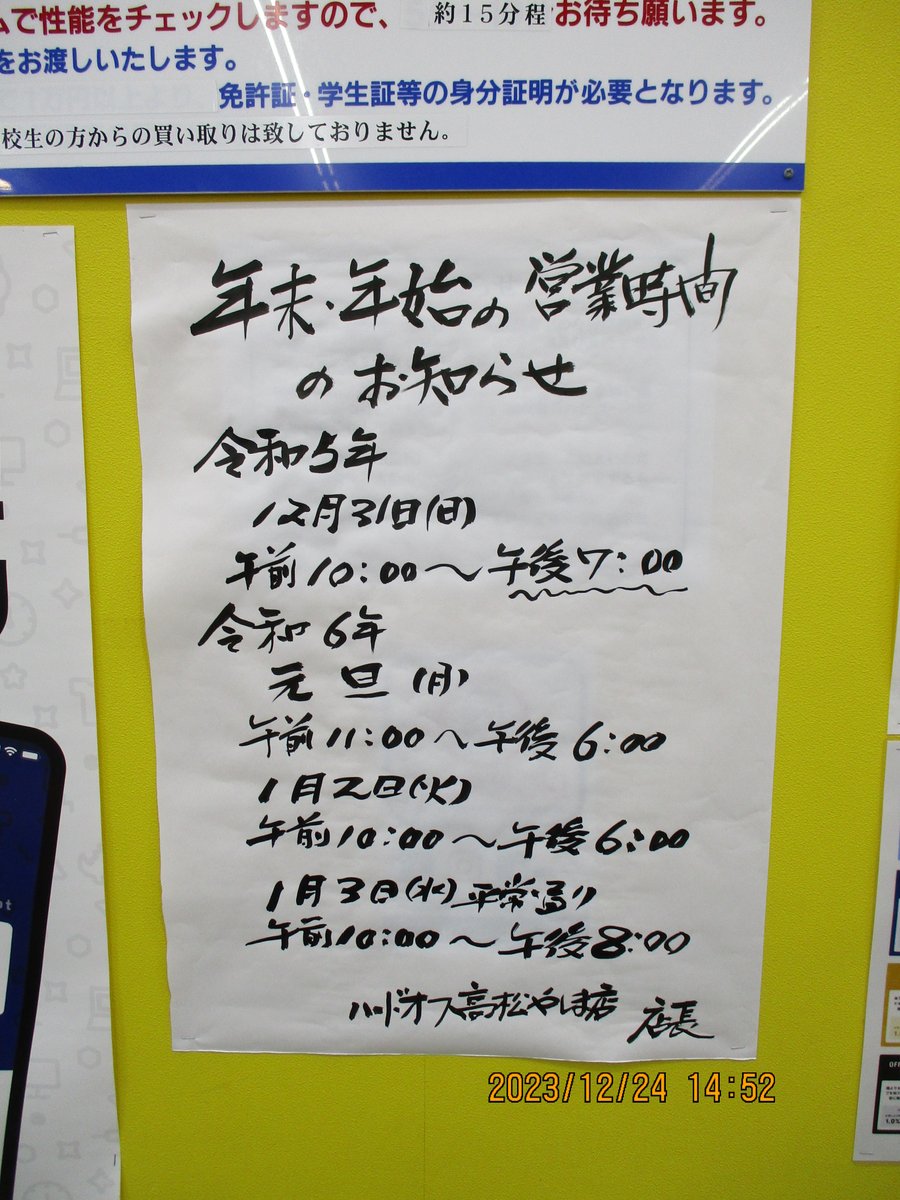 ムで性能をチェックしますので、 約15分程お待ち願います。
をお渡しいたします。
免許証・学生証等の身分証明が必要となります。
校生の方からの買い取りは致しておりません。
年末・年始の営業時間
のお知らせ
令和5年
12月31日(日)
午前10:00〜午後7:00
令和6年
元旦(月)
午前11:00〜午後6:00
1月2日(火)
午前10:00〜午後6:00
1月3日(水)平常通り
午前10:00〜午後8:00
ハードオフ高松やしま店 店長
2023/12/24 14:52